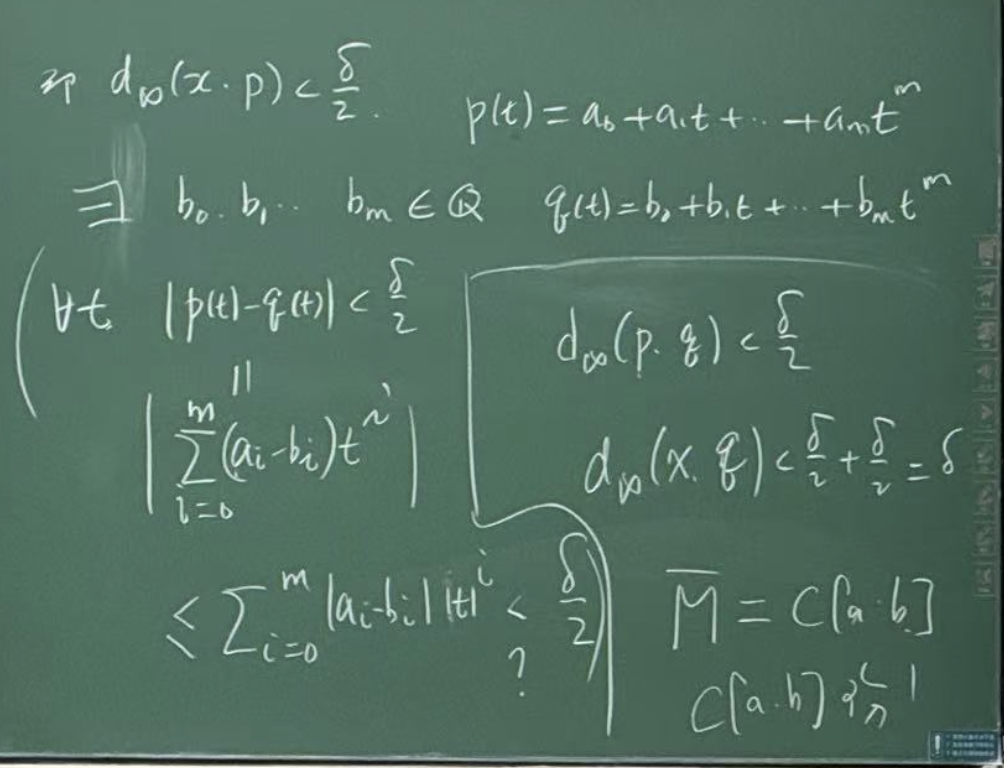 即 d∞(x.p) < δ/2.
p(t) = a₀ + a₁t + ... + aₘtᵐ
∃ b₀. b₁.. bₘ ∈ ℚ
q(t) = b₀ + b₁t + ... + bₘtᵐ
(∀t |p(t)-q(t)| < δ/2
||
|∑_{i=0}^{m} (aᵢ-bᵢ)tⁱ|
≤ ∑_{i=0}^{m} |aᵢ-bᵢ| |t|ⁱ < δ/2)
?
d∞(p.q) < δ/2
d∞(x.q) < δ/2 + δ/2 = δ
M̅ = C[a.b]
C[a.b] 可分